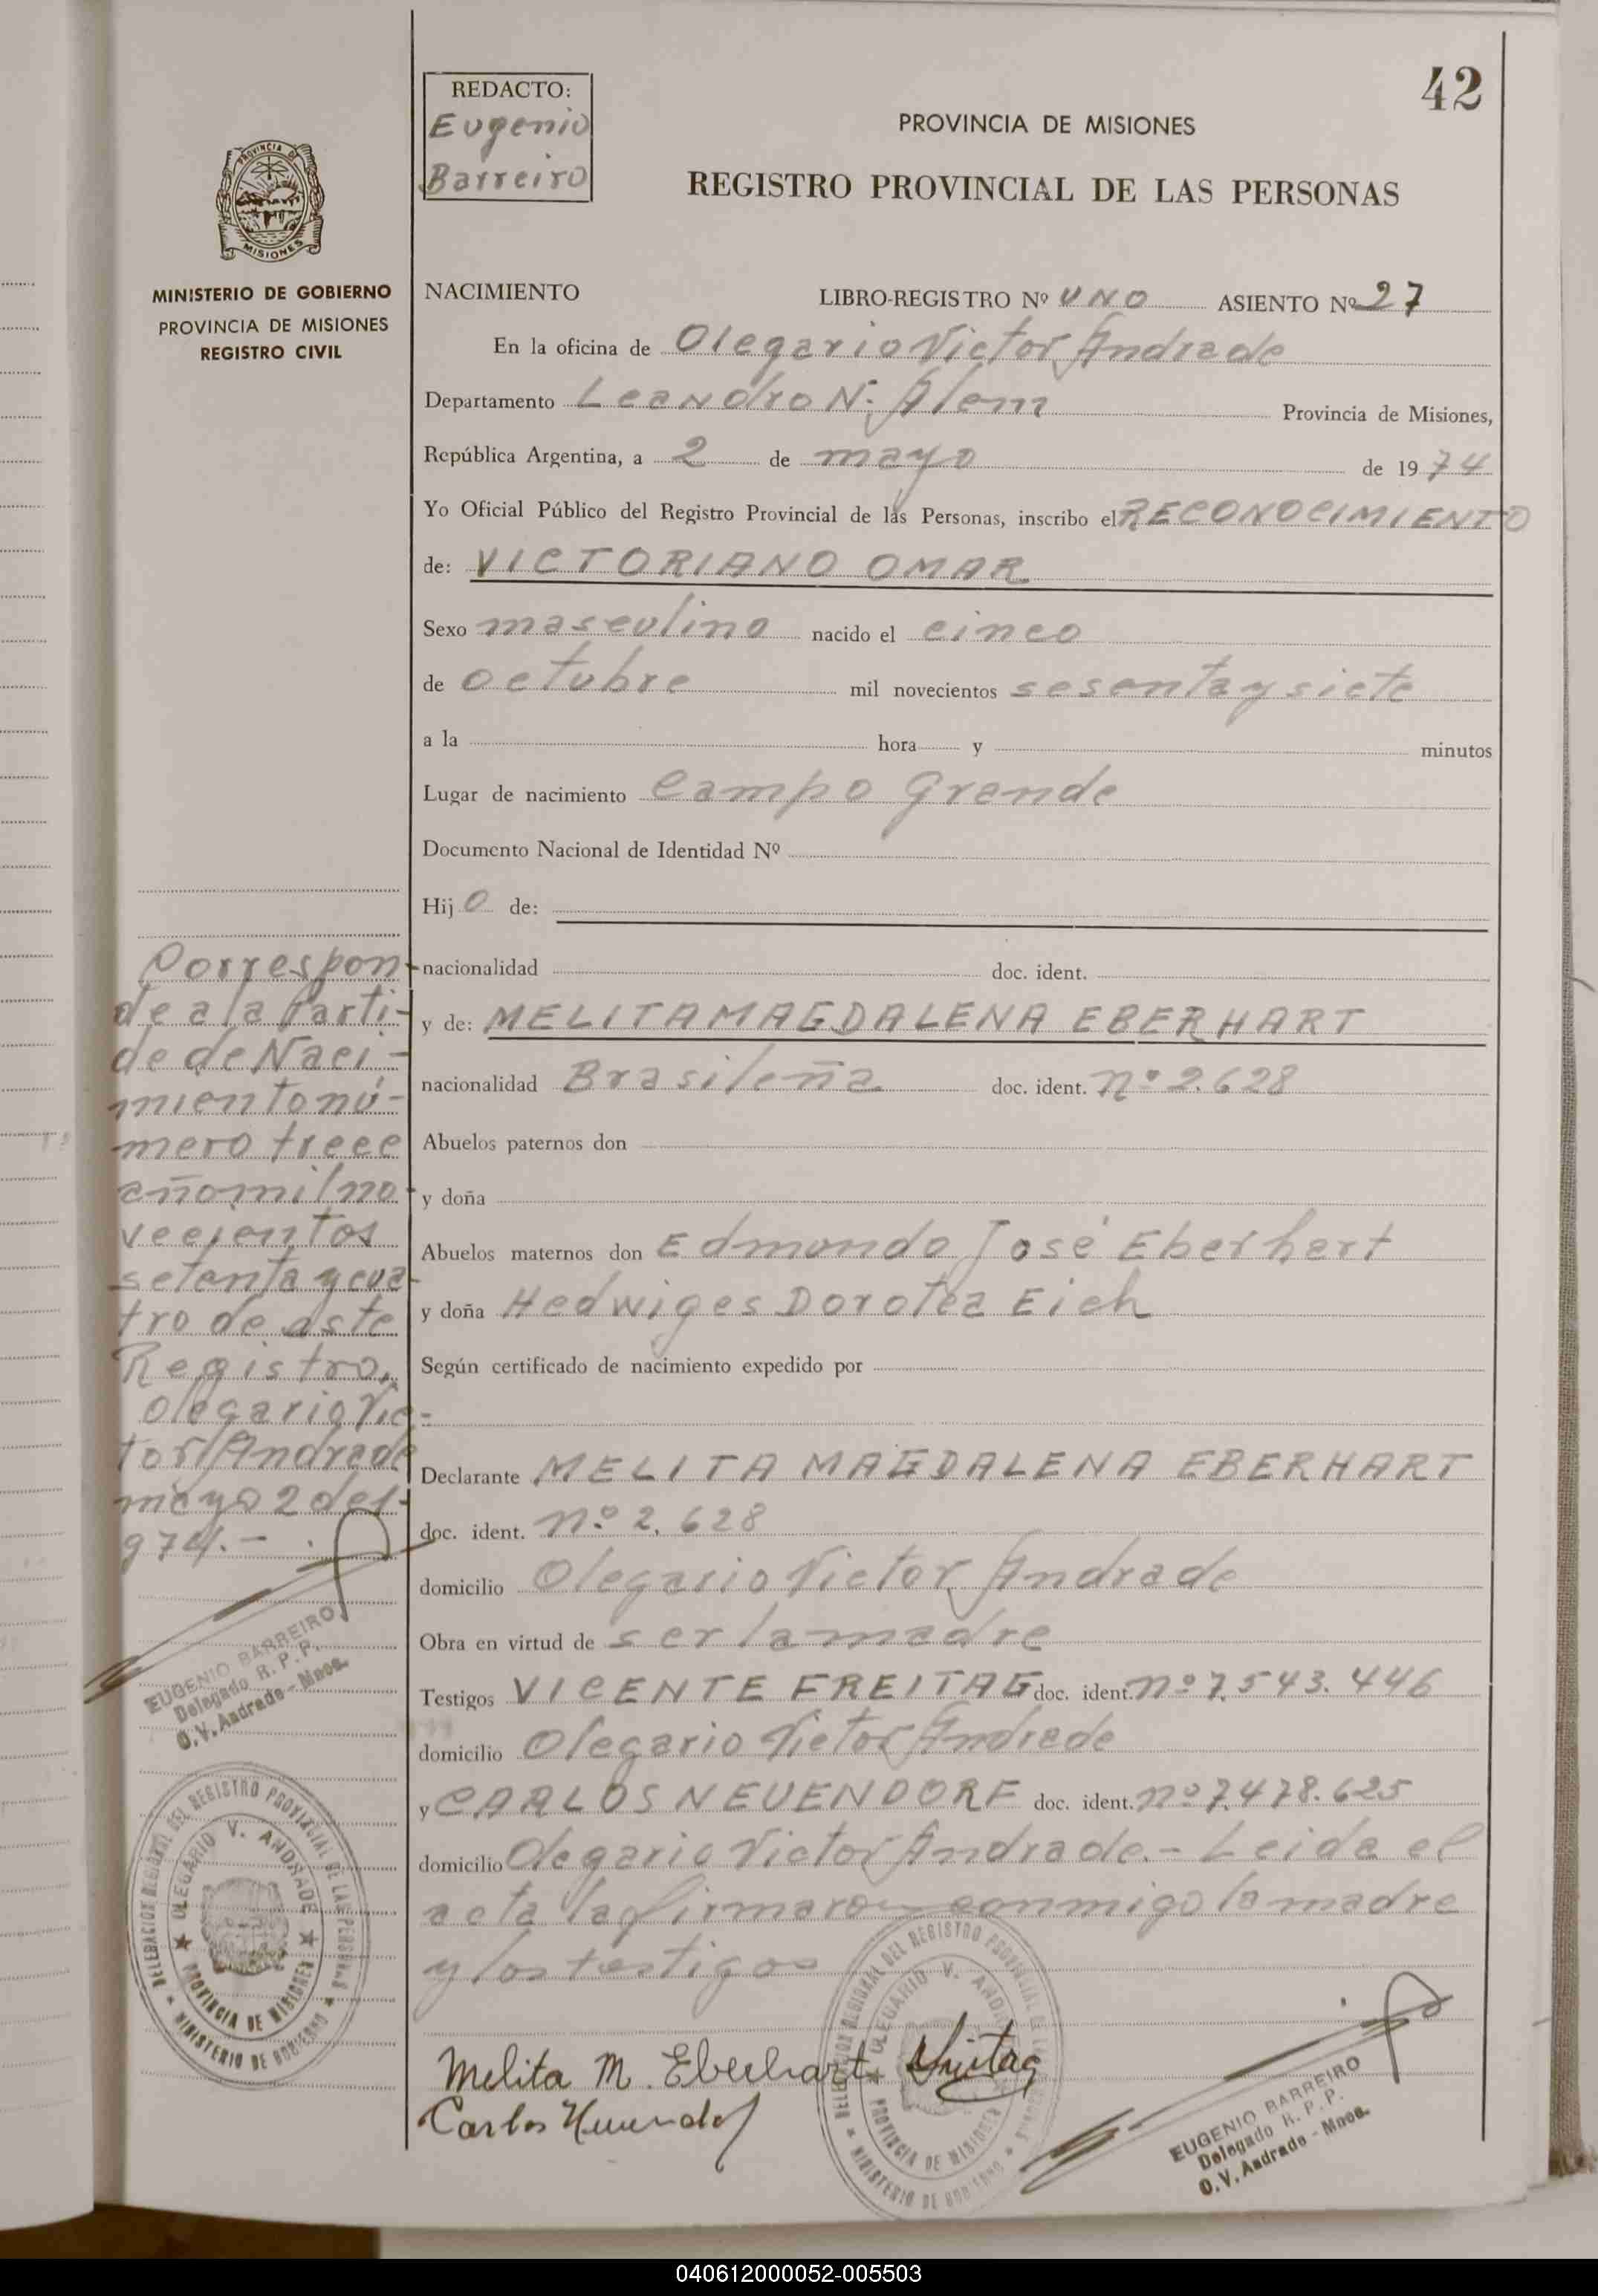 42
REDACTO:
Eugenio
Barreiro
PROVINCIA DE MISIONES
REGISTRO PROVINCIAL DE LAS PERSONAS
PROVINCIA DE
MISIONES
MINISTERIO DE GOBIERNO
PROVINCIA DE MISIONES
REGISTRO CIVIL
NACIMIENTO LIBRO-REGISTRO Nº UNO ASIENTO Nº 27
En la oficina de Olegario Victor Andrade
Departamento Leandro N. Alem Provincia de Misiones,
República Argentina, a 2 de mayo de 1974
Yo Oficial Público del Registro Provincial de las Personas, inscribo el RECONOCIMIENTO
de: VICTORIANO OMAR
Sexo masculino nacido el cinco
de octubre mil novecientos sesenta y siete
a la hora y minutos
Lugar de nacimiento Campo Grande
Documento Nacional de Identidad Nº
Hijo de:
nacionalidad doc. ident.
y de: MELITA MAGDALENA EBERHART
nacionalidad Brasileña doc. ident. nº 2.628
Abuelos paternos don
y doña
Abuelos maternos don Edmundo José Eberhart
y doña Hedwiges Dorotea Eich
Según certificado de nacimiento expedido por
Declarante MELITA MAGDALENA EBERHART
doc. ident. nº 2.628
domicilio Olegario Victor Andrade
Obra en virtud de ser la madre
Testigos VICENTE FREITAG doc. ident. nº 7.543.446
domicilio Olegario Victor Andrade
y CARLOS NEUENDORF doc. ident. nº 7.478.625
domicilio Olegario Victor Andrade.- Leida el
acta la firmaron conmigo la madre
y los testigos
Correspon-
de a la Parti-
de de Naci-
miento nú-
mero trece
año mil no
vecientos
setenta y cua-
tro de este
Registro.
Olegario Vic-
tor Andrade
mayo 2 de 1-
974.-
EUGENIO BARREIRO
Delegado R. P. P.
O. V. Andrade - Mnes.
DELEGACION REGIONAL DEL REGISTRO PROVINCIAL DE LAS PERSONAS
OLEGARIO V. ANDRADE
PROVINCIA DE MISIONES
MINISTERIO DE GOBIERNO
Melita M. Eberhart Freitag
Carlos Neuendorf
DELEGACION REGIONAL DEL REGISTRO PROVINCIAL DE LAS PERSONAS
OLEGARIO V. ANDRADE
PROVINCIA DE MISIONES
MINISTERIO DE GOBIERNO
EUGENIO BARREIRO
Delegado R. P. P.
O. V. Andrade - Mnes.
040612000052-005503